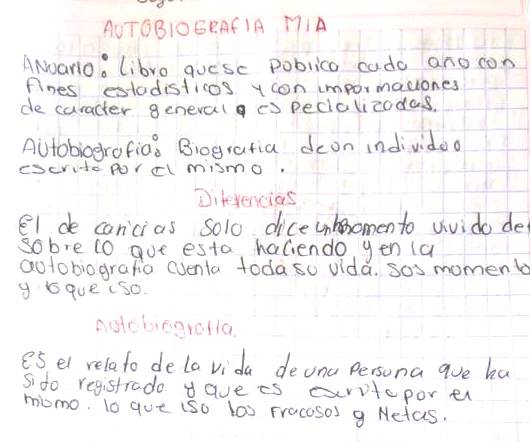 AUTOBIOGRAFIA MIA
ANUario: libro quese publica cada año con
fines estadisticos y con informaciones
de caracter general o especializadas.
Autobiografia: Biografia deun individuo
escrito por el mismo.
Diferencias
El de caricias solo dice un momento vivido de
sobre lo que esta haciendo y en la
autobiografia cuenta toda su vida. sus momento
y lo que iso.
Autobiografia.
Es el relato de la vida de una persona que ha
sido registrado y que es escrito por el
mismo. lo que iso los fracasos y Metas.